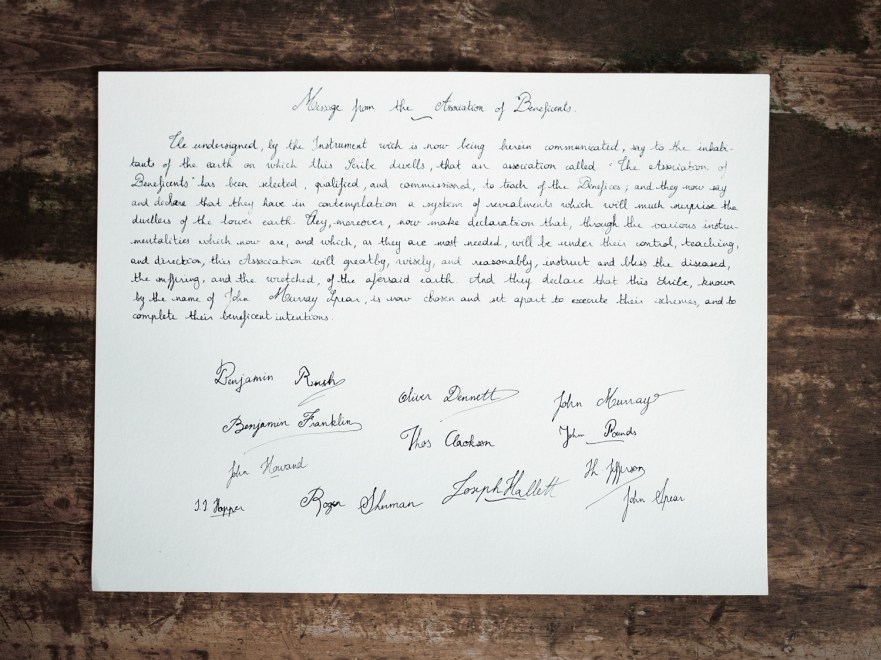 Message from the Association of Beneficents.
We undersigned, by the Instrument wich is now being herein communicated, say to the inhabi-
tants of the earth on which this Scribe dwells, that an association called "The Association of
Beneficents" has been selected, qualified, and commissioned, to teach of the Benefices; and they now say
and declare that they have in contemplation a system of which will much surprise the
dwellers of the lower earth. They, moreover, now make declaration that, through the various instru-
mentalities which now are, and which, as they are most needed, will be under their control, teaching,
and direction, this Association will greatly, wisely, and reasonably, instruct and bless the diseased,
the suffring, and the wretched, of the afersaid earth. And they declare that this Scribe, known
by the name of John Murray Spear, is now chosen and set apart to execute their schemes, and to
complete their beneficent intentions.
Benjamin Rush
Oliver Dennett
John Murray
Benjamin Franklin
Thos Clarkson
John Pounds
John Howard
Th Jefferson
I.T Hopper
Roger Sherman
Joseph Hallett
John Spear